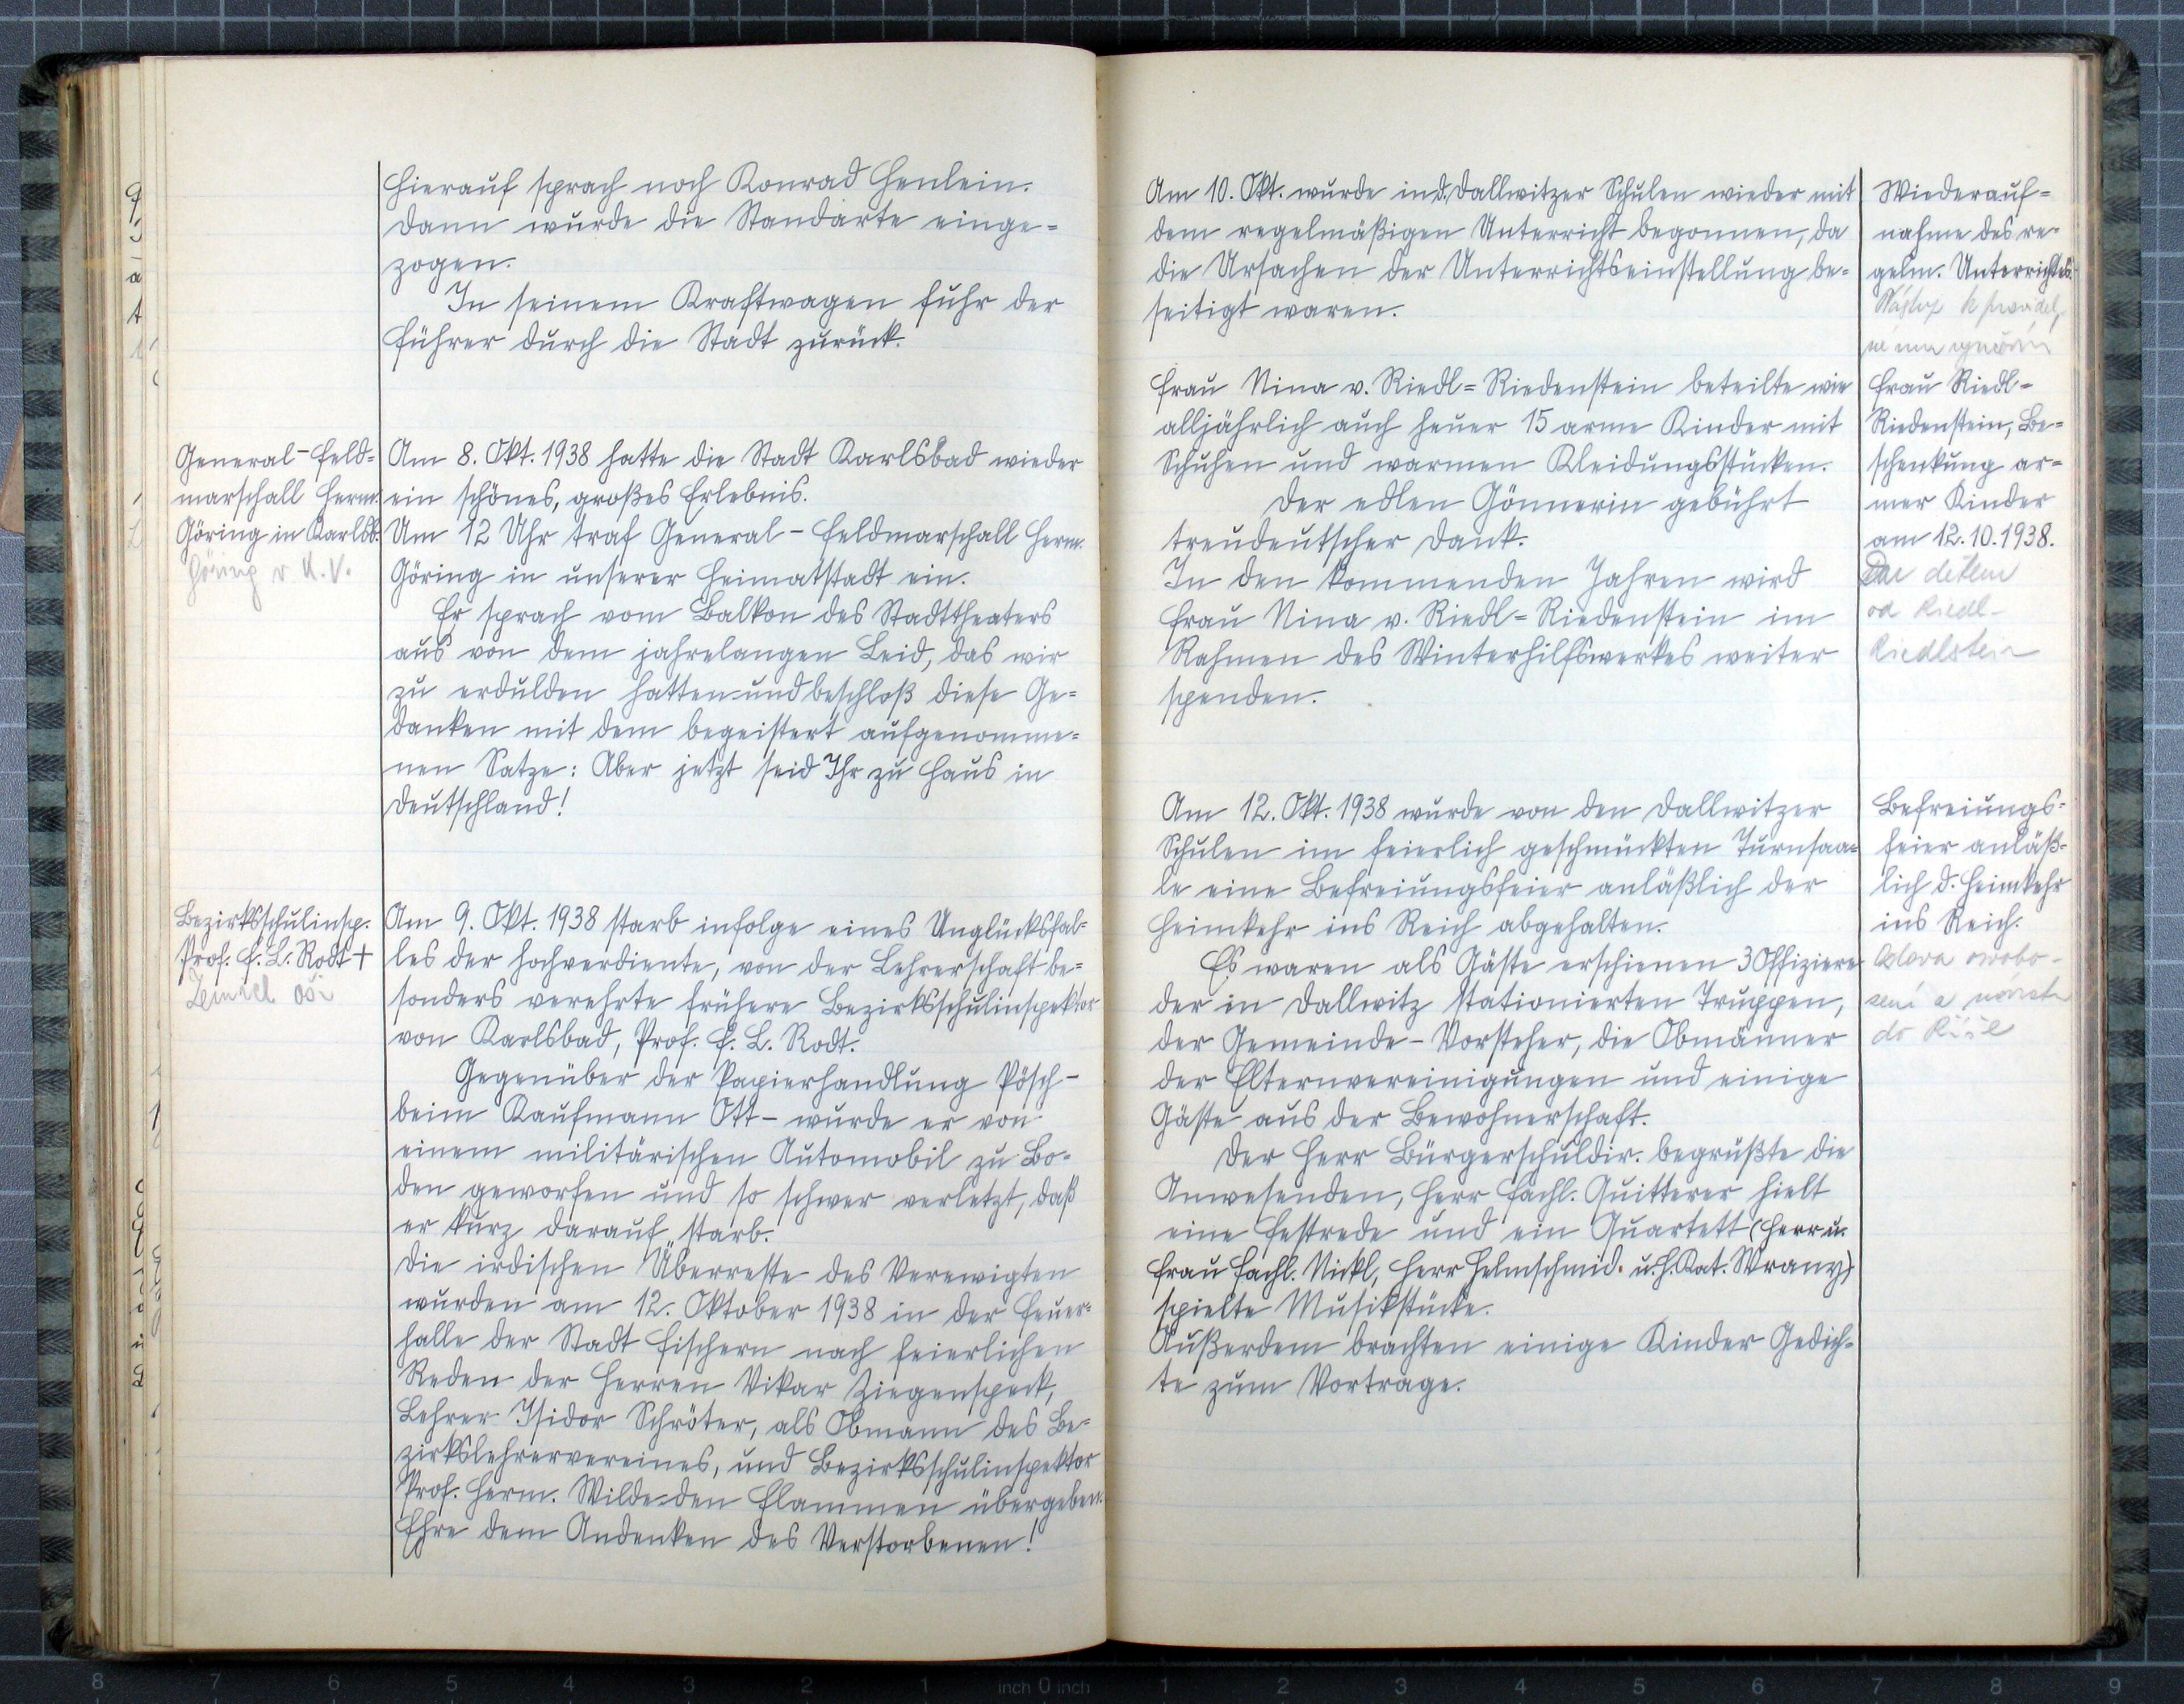 Hierauf sprach noch Konrad Henlein.
Dann wurde die Standarte einge=
zogen.
In seinem Kraftwagen fuhr der
Führer durch die Stadt zurück.
General-Feld=
marschall Herm.
Göring in Karlsb.
Göring v K.V.
Am 8. Okt. 1938 hatte die Stadt Karlsbad wieder
ein schönes, großes Erlebnis.
Um 12 Uhr traf General-Feldmarschall Herm.
Göring in unserer Heimatstadt ein.
Er sprach vom Balkon des Stadttheaters
aus von dem jahrelangen Leid, das wir
zu erdulden hatten und beschloß diese Ge=
danken mit dem begeistert aufgenomme=
nen Satze: Aber jetzt seid Ihr zu Haus in
Deutschland!
Bezirksschulinsp.
Prof. F. L. Rodt †
Zemřel
Am 9. Okt. 1938 starb infolge eines Unglücksfal=
les der hochverdiente, von der Lehrerschaft be=
sonders verehrte frühere Bezirksschulinspektor
von Karlsbad, Prof. F. L. Rodt.
Gegenüber der Papierhandlung Pösch-
beim Kaufmann Ott - wurde er von
einem militärischen Automobil zu Bo=
den geworfen und so schwer verletzt, daß
er kurz darauf starb.
Die irdischen Überreste des Verewigten
wurden am 12. Oktober 1938 in der Feuer=
halle der Stadt Fischern nach feierlichen
Reden der Herren Vikar Ziegenspeck,
Lehrer Isidor Schröter, als Obmann des Be=
zirkslehrervereines, und Bezirksschulinspektor
Prof. Herm. Wilde den Flammen übergeben.
Ehre dem Andenken des Verstorbenen!
Am 10. Okt. wurde in d. Dallwitzer Schulen wieder mit
dem regelmäßigen Unterricht begonnen, da
die Ursachen der Unterrichtseinstellung be=
seitigt waren.
Wiederauf=
nahme des re=
gelm. Unterrichtes.
k pravidel
Frau Nina v. Riedl=Riedenstein beteilte wie
alljährlich auch heuer 15 arme Kinder mit
Schuhen und warmen Kleidungsstücken.
Der edlen Gönnerin gebührt
treudeutscher Dank.
In den kommenden Jahren wird
Frau Nina v. Riedl=Riedenstein im
Rahmen des Winterhilfswerkes weiter
spenden.
Frau Riedl=
Riedenstein, Be=
schenkung ar=
mer Kinder
am 12.10.1938.
Dar dětem
od Riedl-
Riedlstein
Am 12. Okt. 1938 wurde von den Dallwitzer
Schulen im feierlich geschmückten Turnsaa=
le eine Befreiungsfeier anläßlich der
Heimkehr ins Reich abgehalten.
Es waren als Gäste erschienen 3 Offiziere
der in Dallwitz stationierten Truppen,
der Gemeinde-Vorsteher, die Obmänner
der Elternvereinigungen und einige
Gäste aus der Bewohnerschaft.
Der Herr Bürgerschuldir. begrüßte die
Anwesenden, Herr Fachl. Quitterer hielt
eine Festrede und ein Quartett (Herr u.
Frau Fachl. Nickl, Herr Helmschmid. u. H. Kat. Wrany)
spielte Musikstücke.
Außerdem brachten einige Kinder Gedich=
te zum Vortrage.
Befreiungs=
feier anläß=
lich d. Heimkehr
ins Reich.
Oslava osvobo-
zení a návratu
do Říše
8 7 6 5 4 3 2 1 inch 0 inch 1 2 3 4 5 6 7 8 9